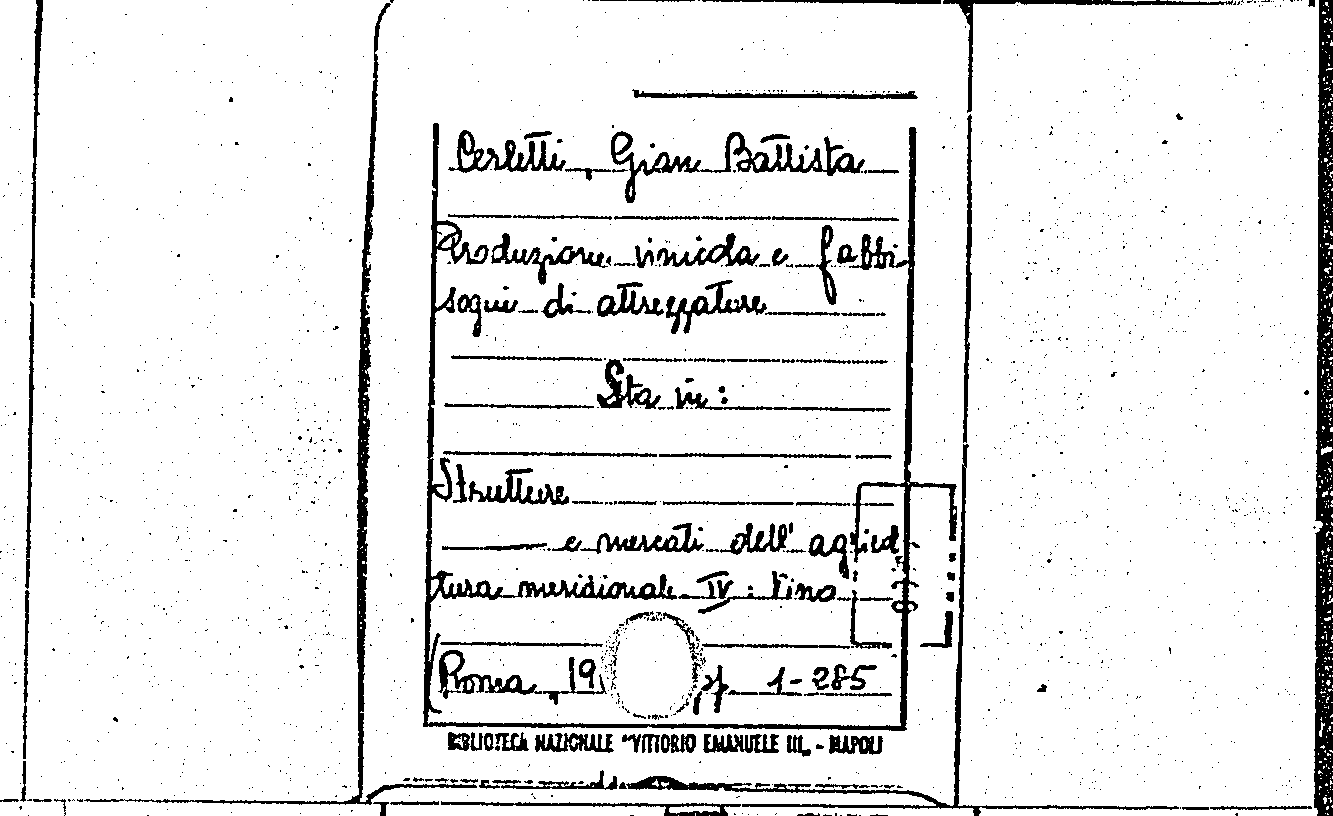 Cerletti, Gian Battista
Produzione vinicola e fabbi-
sogni di attrezzature
Sta in:
Strutture
e mercati dell' agricol-
tura meridionale. IV: Vino
(Roma, 19 pp. 1-285
BIBLIOTECA NAZIONALE "VITTORIO EMANUELE III„ - NAPOLI